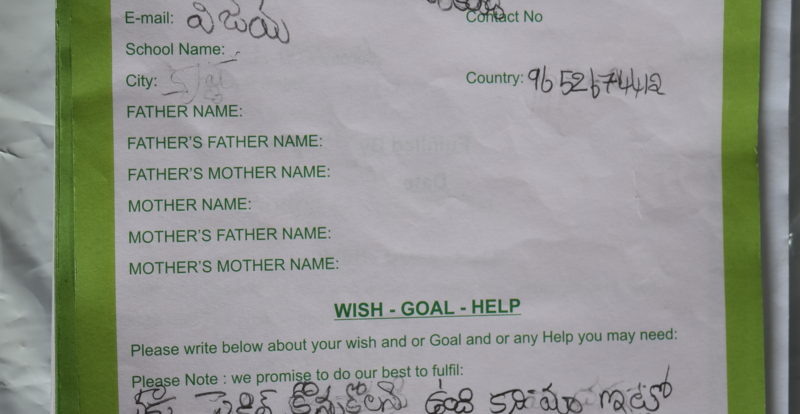 E-mail: విజయ Contact No
School Name:
City: Country: 9652674412
FATHER NAME:
FATHER'S FATHER NAME:
FATHER'S MOTHER NAME:
MOTHER NAME:
MOTHER'S FATHER NAME:
MOTHER'S MOTHER NAME:
WISH - GOAL - HELP
Please write below about your wish and or Goal and or any Help you may need:
Please Note : we promise to do our best to fulfil:
ఉంది